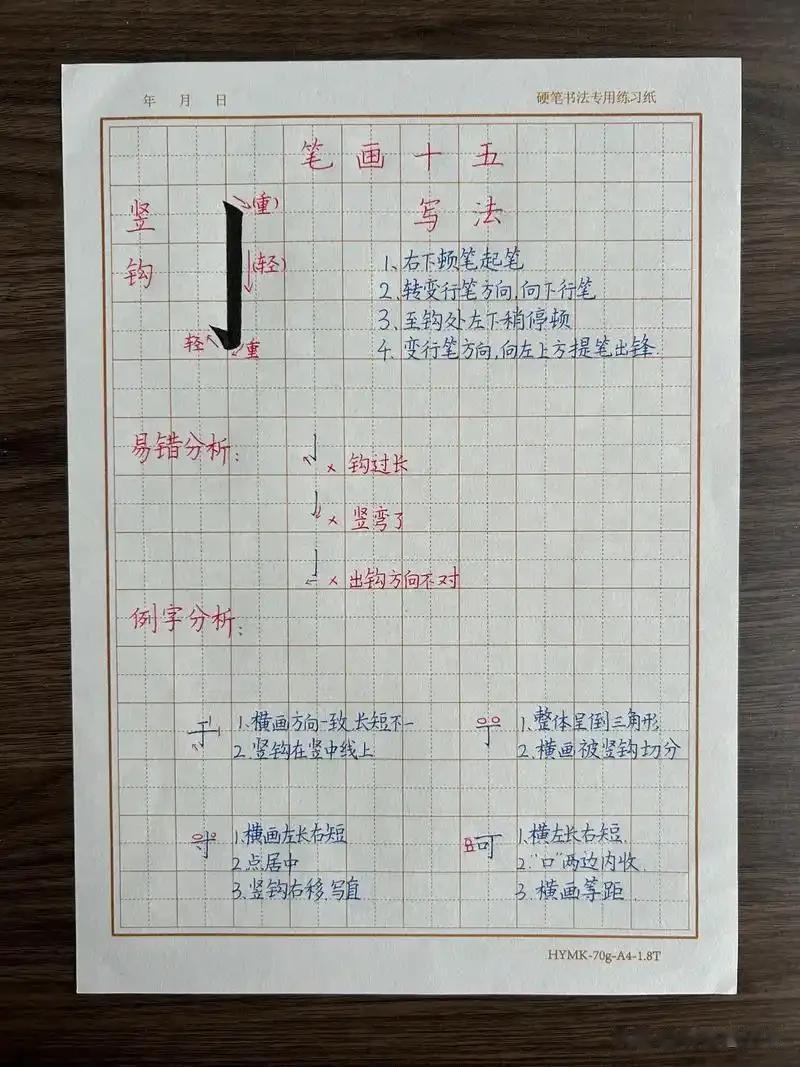 年 月 日
硬笔书法专用练习纸
笔画十五
竖钩
(重)
(轻)
轻
重
写法
1、右下顿笔起笔
2、转变行笔方向,向下行笔
3、至钩处左下稍停顿
4、变行笔方向,向左上方提笔出锋.
易错分析:
× 钩过长
× 竖弯了
× 出钩方向不对
例字分析:
于
1、横画方向一致,长短不一
2、竖钩在竖中线上
丁
1、整体呈倒三角形
2、横画被竖钩切分
寸
1、横画左长右短
2、点居中
3、竖钩右移,写直
可
1、横左长右短
2、"口"两边内收
3、横画等距
HYMK-70g-A4-1.8T